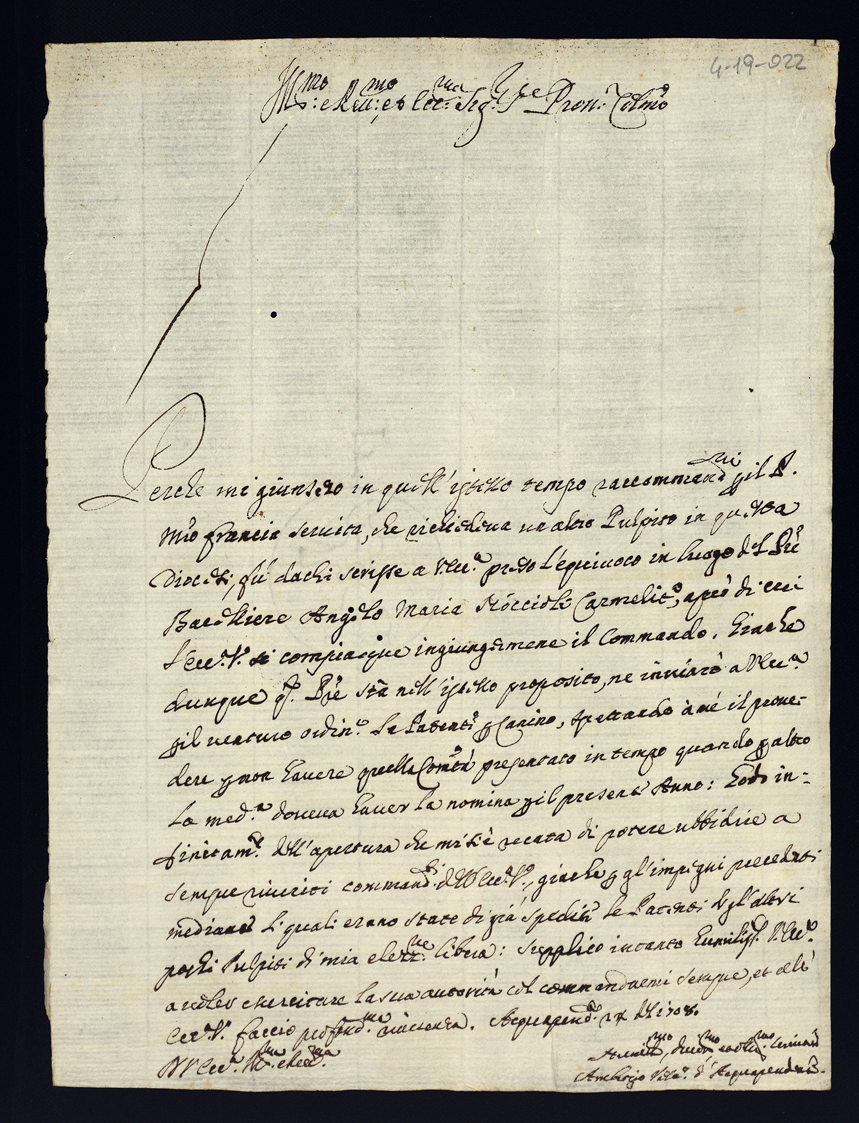 4-19-022
Ill.mo e Rev.mo et Ecc.mo Sig.re Pron. Col.mo
Perche mi giunsero in quell'istesso tempo raccommand.ni p il P.
Mro Francia servita, che richiedeva un altro Pulpito in questa
Diocesi, fu da chi scrisse a V.Ecc.a preso l'equivoco in luogo del Prê
Bacceliere Angelo Maria Carmelit.o, aprò di cui
l'Ecc.V. si compiacque ingiungermene il Commando. Giache
dunque q.o Prê stà nell'istesso proposito, ne inviarò a V.Ecc.a
p il venturo ordin.o la Patente p Canino, spettando à mé il prove-
dere p non havere quella Com.tà presentato in tempo quando p altro
la med.a doveva haver la nomina p il presente Anno: Godo in-
finitam.te dell'apertura che mi si è recata di potere ubbidire a
sempre riveriti command.i dell'Ecc.V., giache p gl'impegni precedenti
mediante li quali erano state di già spedite le Patenti p gl'altri
pochi Pulpiti di mia elez.ne libera: supplico intanto humiliss. V.Ecc.a
a voler esercitare la sua autorità col commandarmi sempre, et all'
Ecc.V. faccio profond.ma riverenza. Acquapend.te 1708.
D V Ecc.a Ill.ma e Rev.ma
Humil.mo, Dev.mo et Obl.mo Servitore
Ambrogio Vesc.o d'Acquapendente